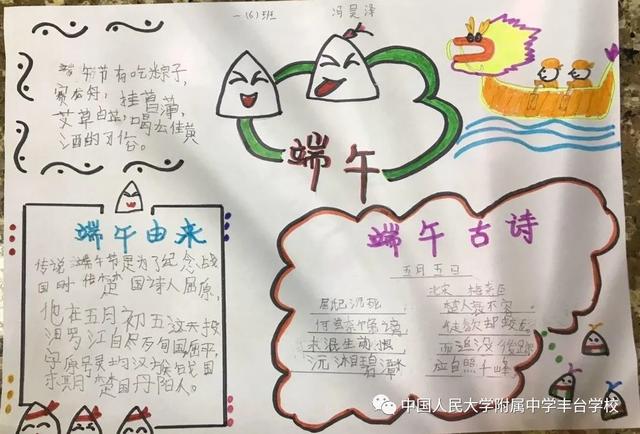 一(6)班 冯昊泽
端午节有吃粽子,
赛龙舟,挂菖蒲,
艾草白芷,喝雄黄
酒的习俗。
端午
端午由来
传说端午节是为了纪念战
国时楚国诗人屈原,
他在五月初五这天投
汨罗江自尽
屈平,
字原号灵均汉族战国
末期楚国丹阳人。
端午古诗
五月五日
北宋
屈记沉死
楚人衰不容
何尝奈
徒欲却蛟
未泯生前恨
而追没后
沅湘碧潭
应自照千峰
中国人民大学附属中学丰台学校